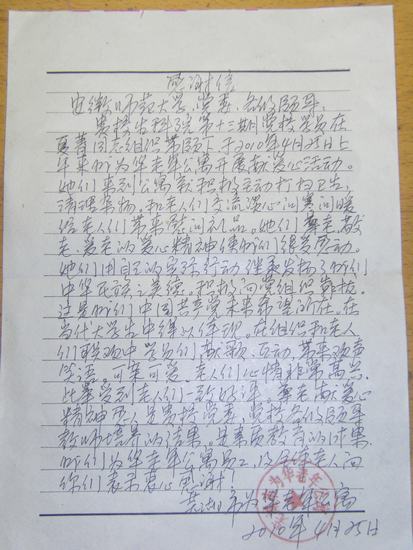 感谢信
安徽师范大学党委、各级领导:
贵校生科院第十三期党校学员在
夏菁同志组织带领下于2010年4月25日上
午来为华老年公寓开展献爱心活动。
她们来到公寓积极主动打扫卫生,
清理杂物,和老人们交流谈心问寒问暖
给老人们带来慰问礼品。她们尊老敬
老、爱老的爱心精神使我们很受感动。
她们用自己的实际行动继承发扬了我们
中华民族之美德。积极向党组织靠拢。
这是我们中国共产党未来希望所在,在
当代大学生中得以体现。在组织和老人
们联欢中学员们献歌、互动、带来欢声
笑语。可亲可爱。老人们心情非常高兴。
此举受到老人们一致好评。尊老献爱心
精神
教师培养的结果。是素质教育的成果。
我们为华老年公寓员工以及全体老人向
你们表示衷心感谢!
芜湖市为华老年公寓
2010年4月25日